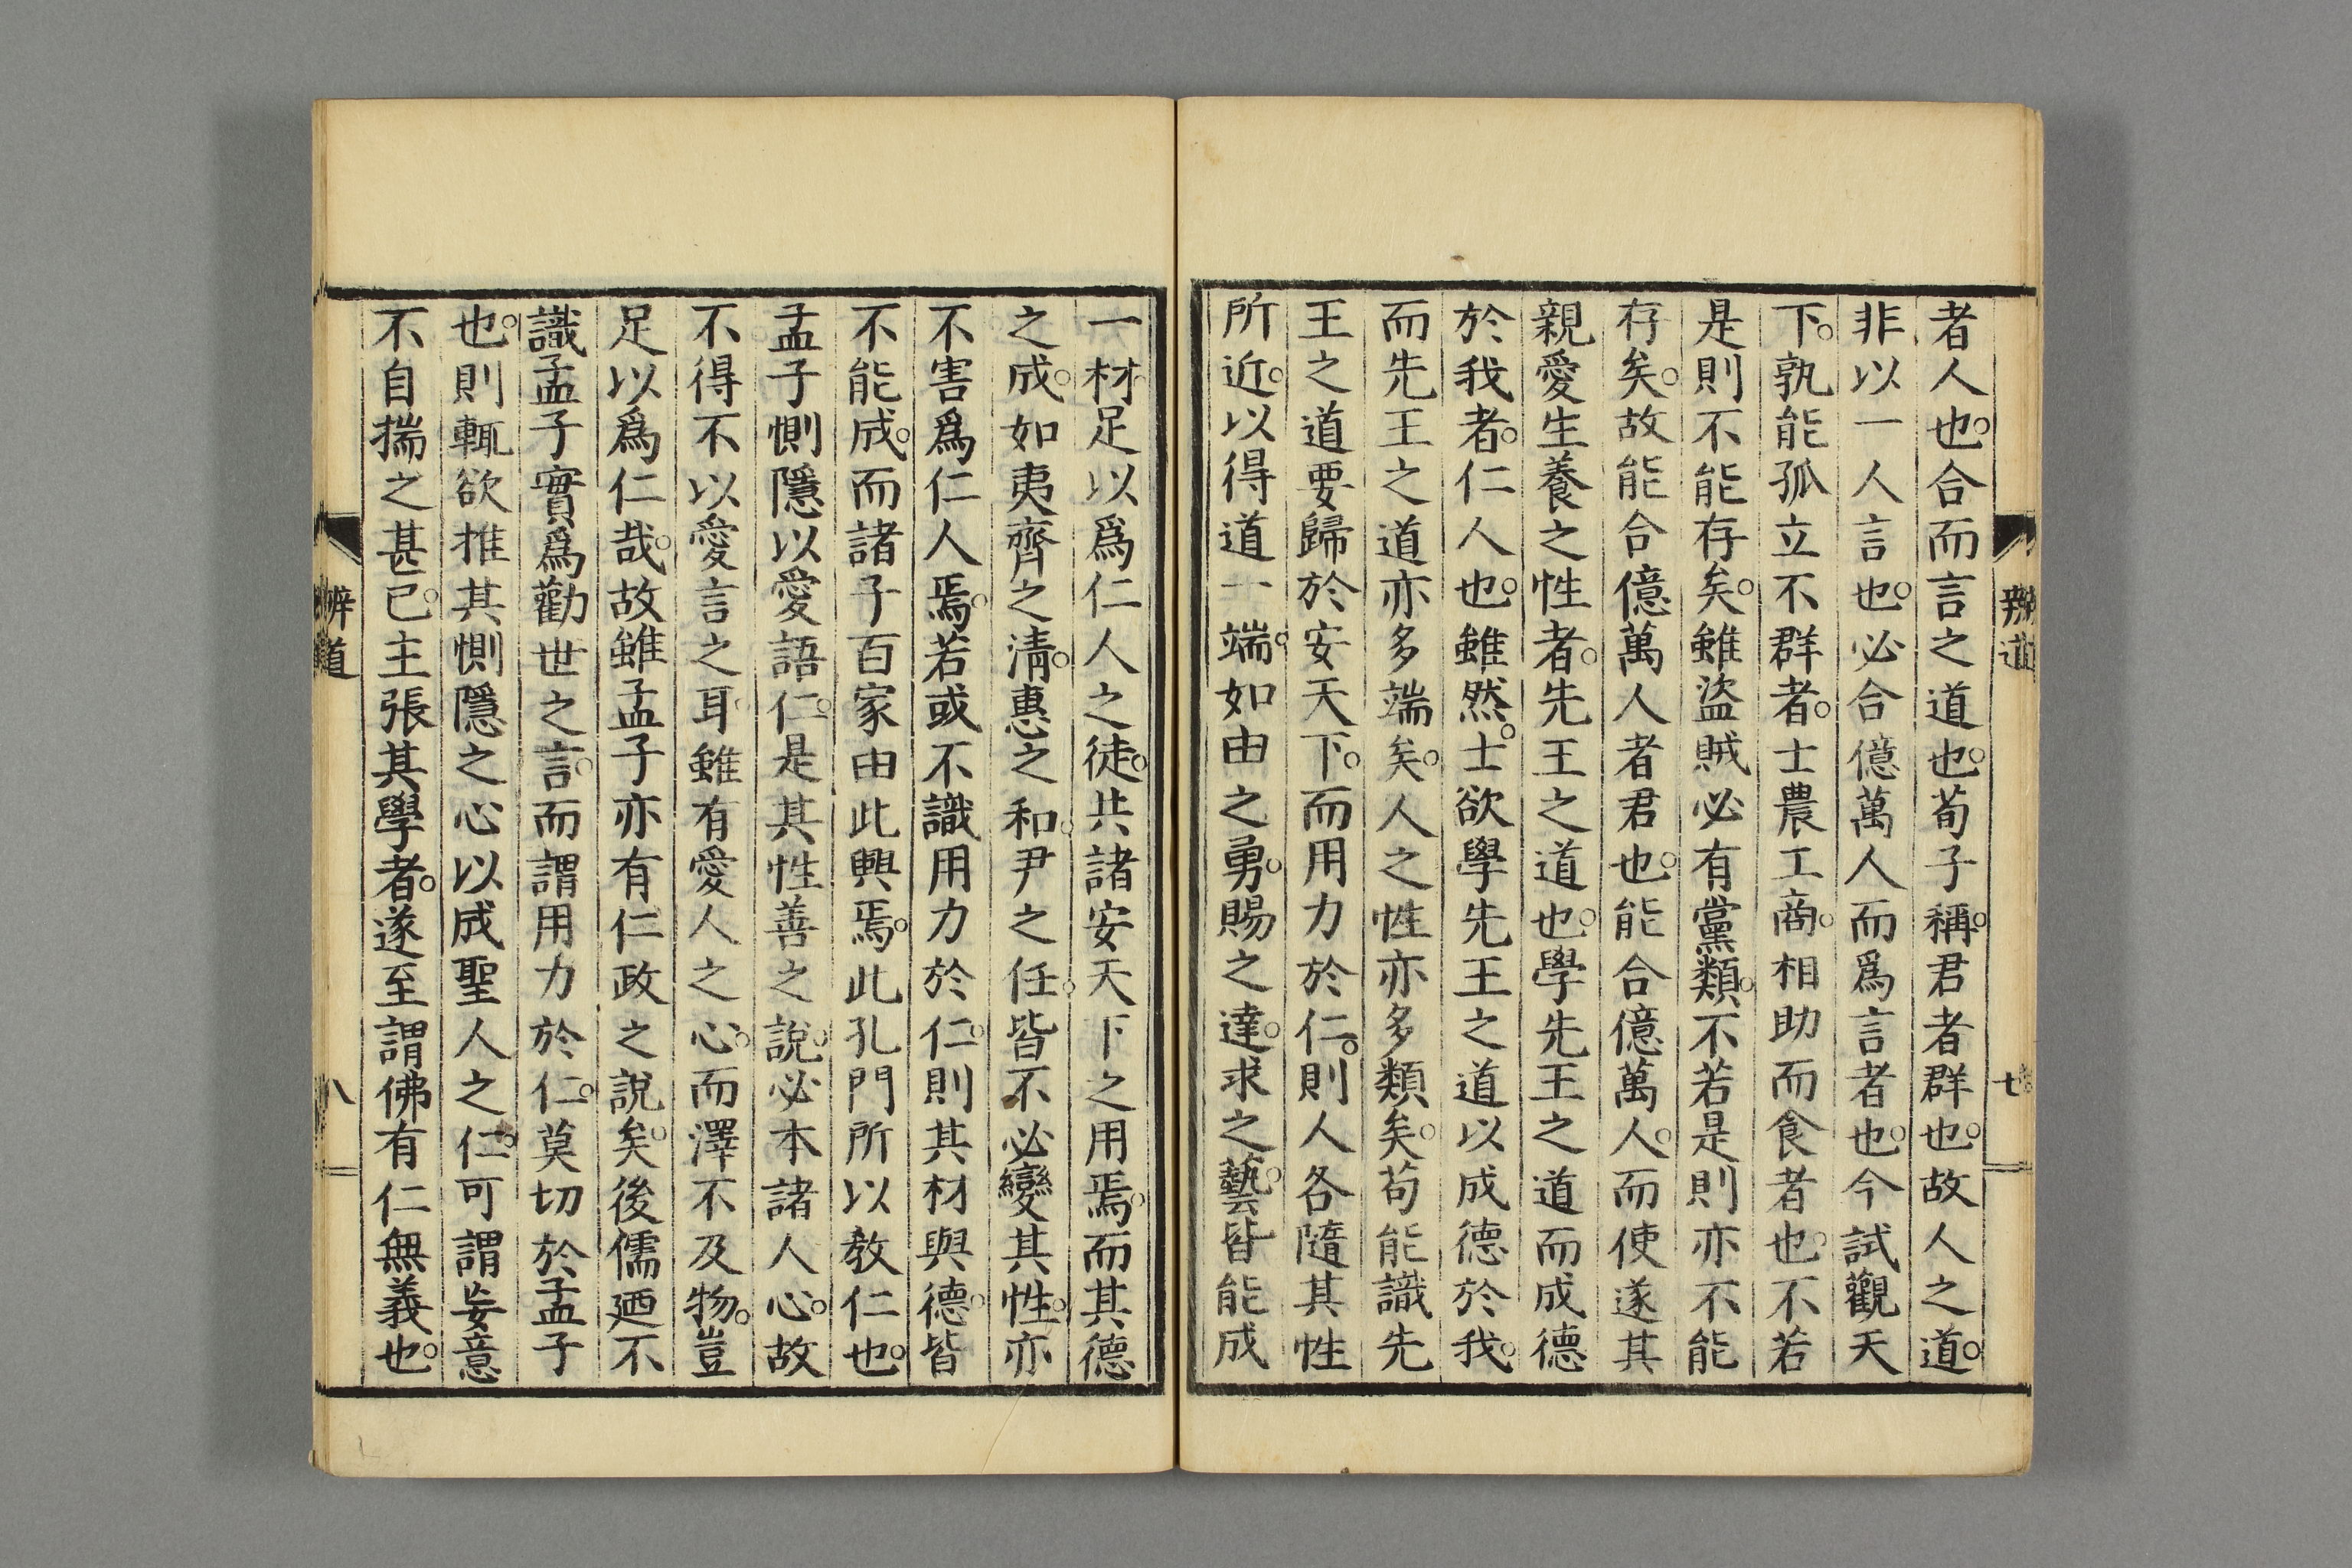 辨道
七
者人也。合而言之道也。荀子稱。君者群也。故人之道。
非以一人言也。必合億萬人而爲言者也。今試觀天
下。孰能孤立不群者。士農工商。相助而食者也。不若
是則不能存矣。雖盜賊必有黨類。不若是則亦不能
存矣。故能合億萬人者君也。能合億萬人。而使遂其
親愛生養之性者。先王之道也。學先王之道而成德
於我者。仁人也。雖然。士欲學先王之道以成德於我。
而先王之道亦多端矣。人之性亦多類矣。苟能識先
王之道要歸於安天下。而用力於仁。則人各隨其性
所近。以得道一端。如由之勇。賜之達。求之藝。皆能成
一材。足以爲仁人之徒。共諸安天下之用焉。而其德
之成。如夷齊之淸。惠之和。尹之任。皆不必變其性。亦
不害爲仁人焉。若或不識用力於仁。則其材與德。皆
不能成。而諸子百家由此興焉。此孔門所以敎仁也。
孟子惻隱以愛語仁。是其性善之說。必本諸人心。故
不得不以愛言之耳。雖有愛人之心。而澤不及物。豈
足以爲仁哉。故雖孟子亦有仁政之說矣。後儒迺不
識孟子實爲勸世之言。而謂用力於仁。莫切於孟子
也。則輒欲推其惻隱之心以成聖人之仁。可謂妄意
不自揣之甚已。主張其學者。遂至謂佛有仁無義也。
辨道
八